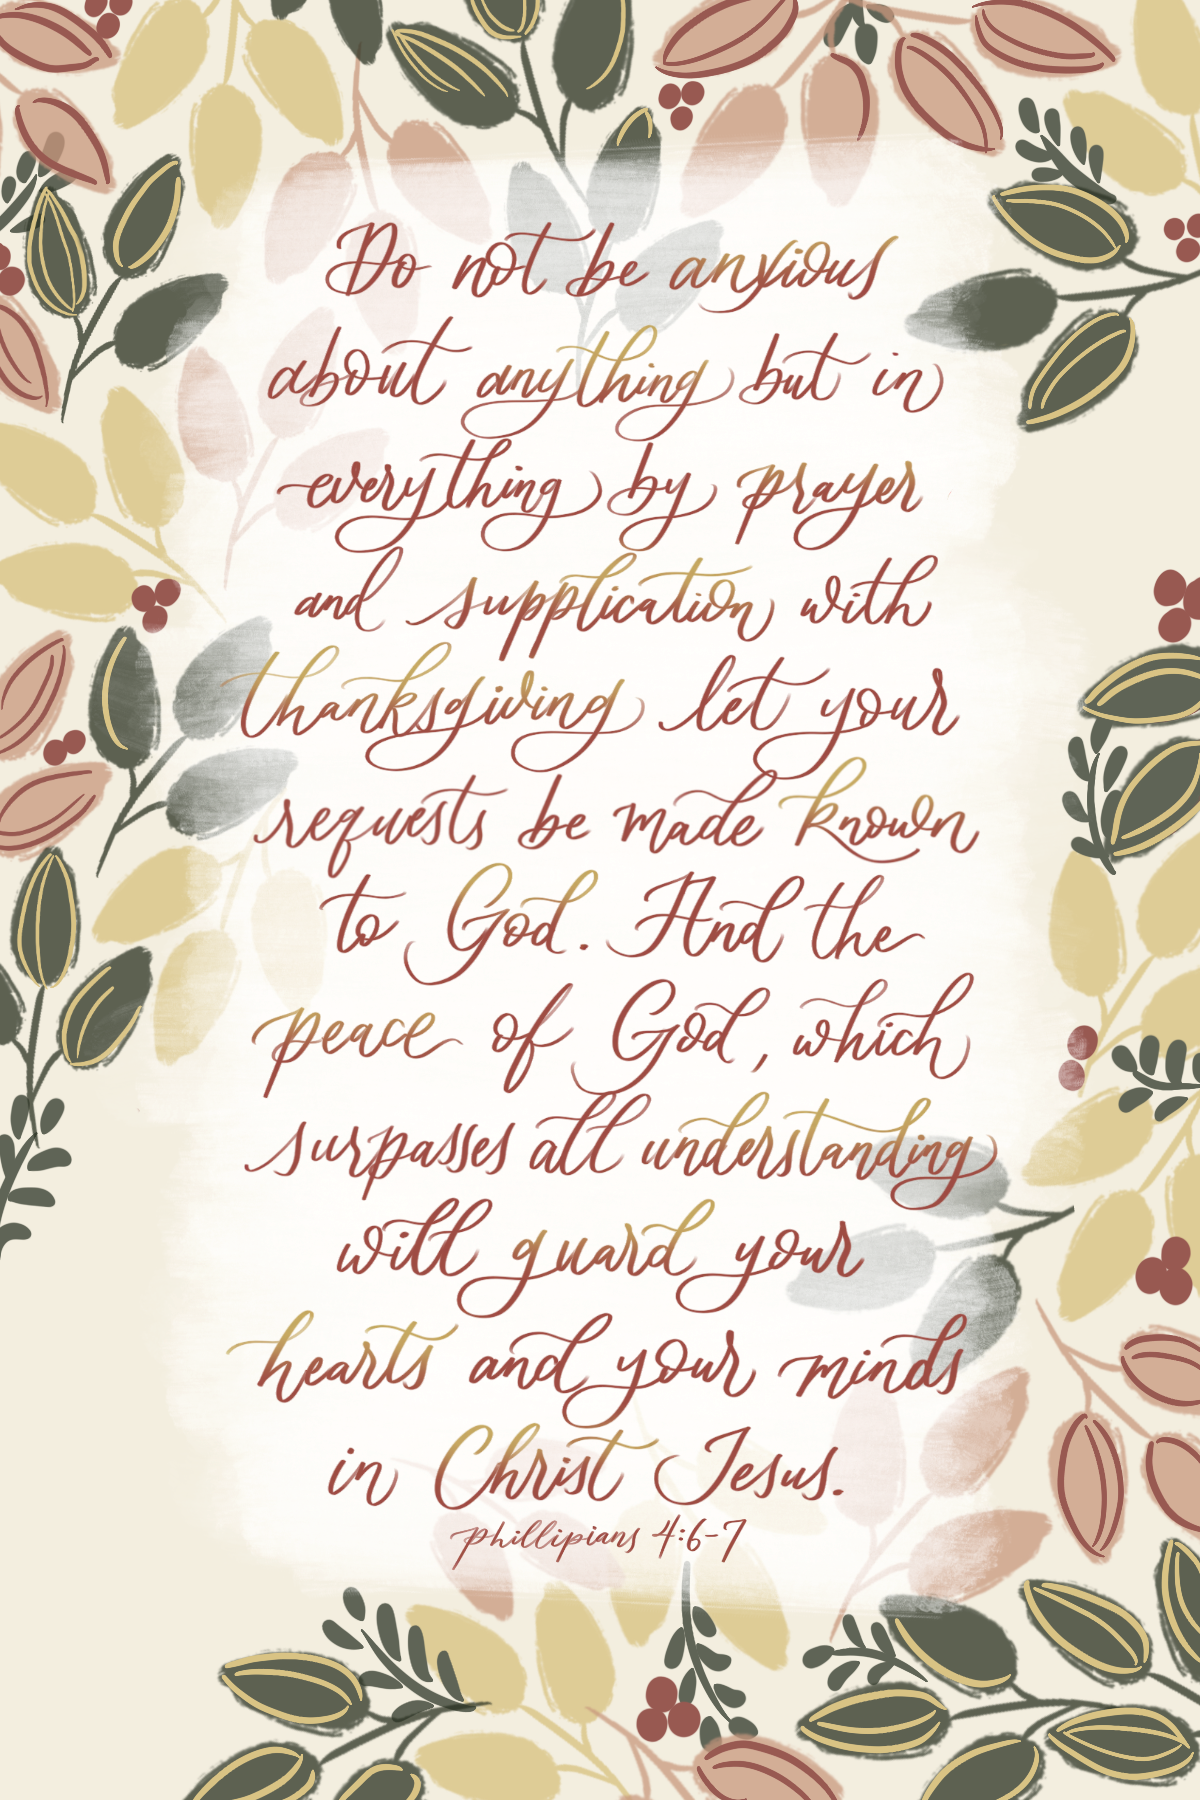 Do not be anxious
about anything but in
everything by prayer
and supplication with
thanksgiving let your
requests be made known
to God. And the
peace of God, which
surpasses all understanding
will guard your
hearts and your minds
in Christ Jesus.
phillipians 4:6-7